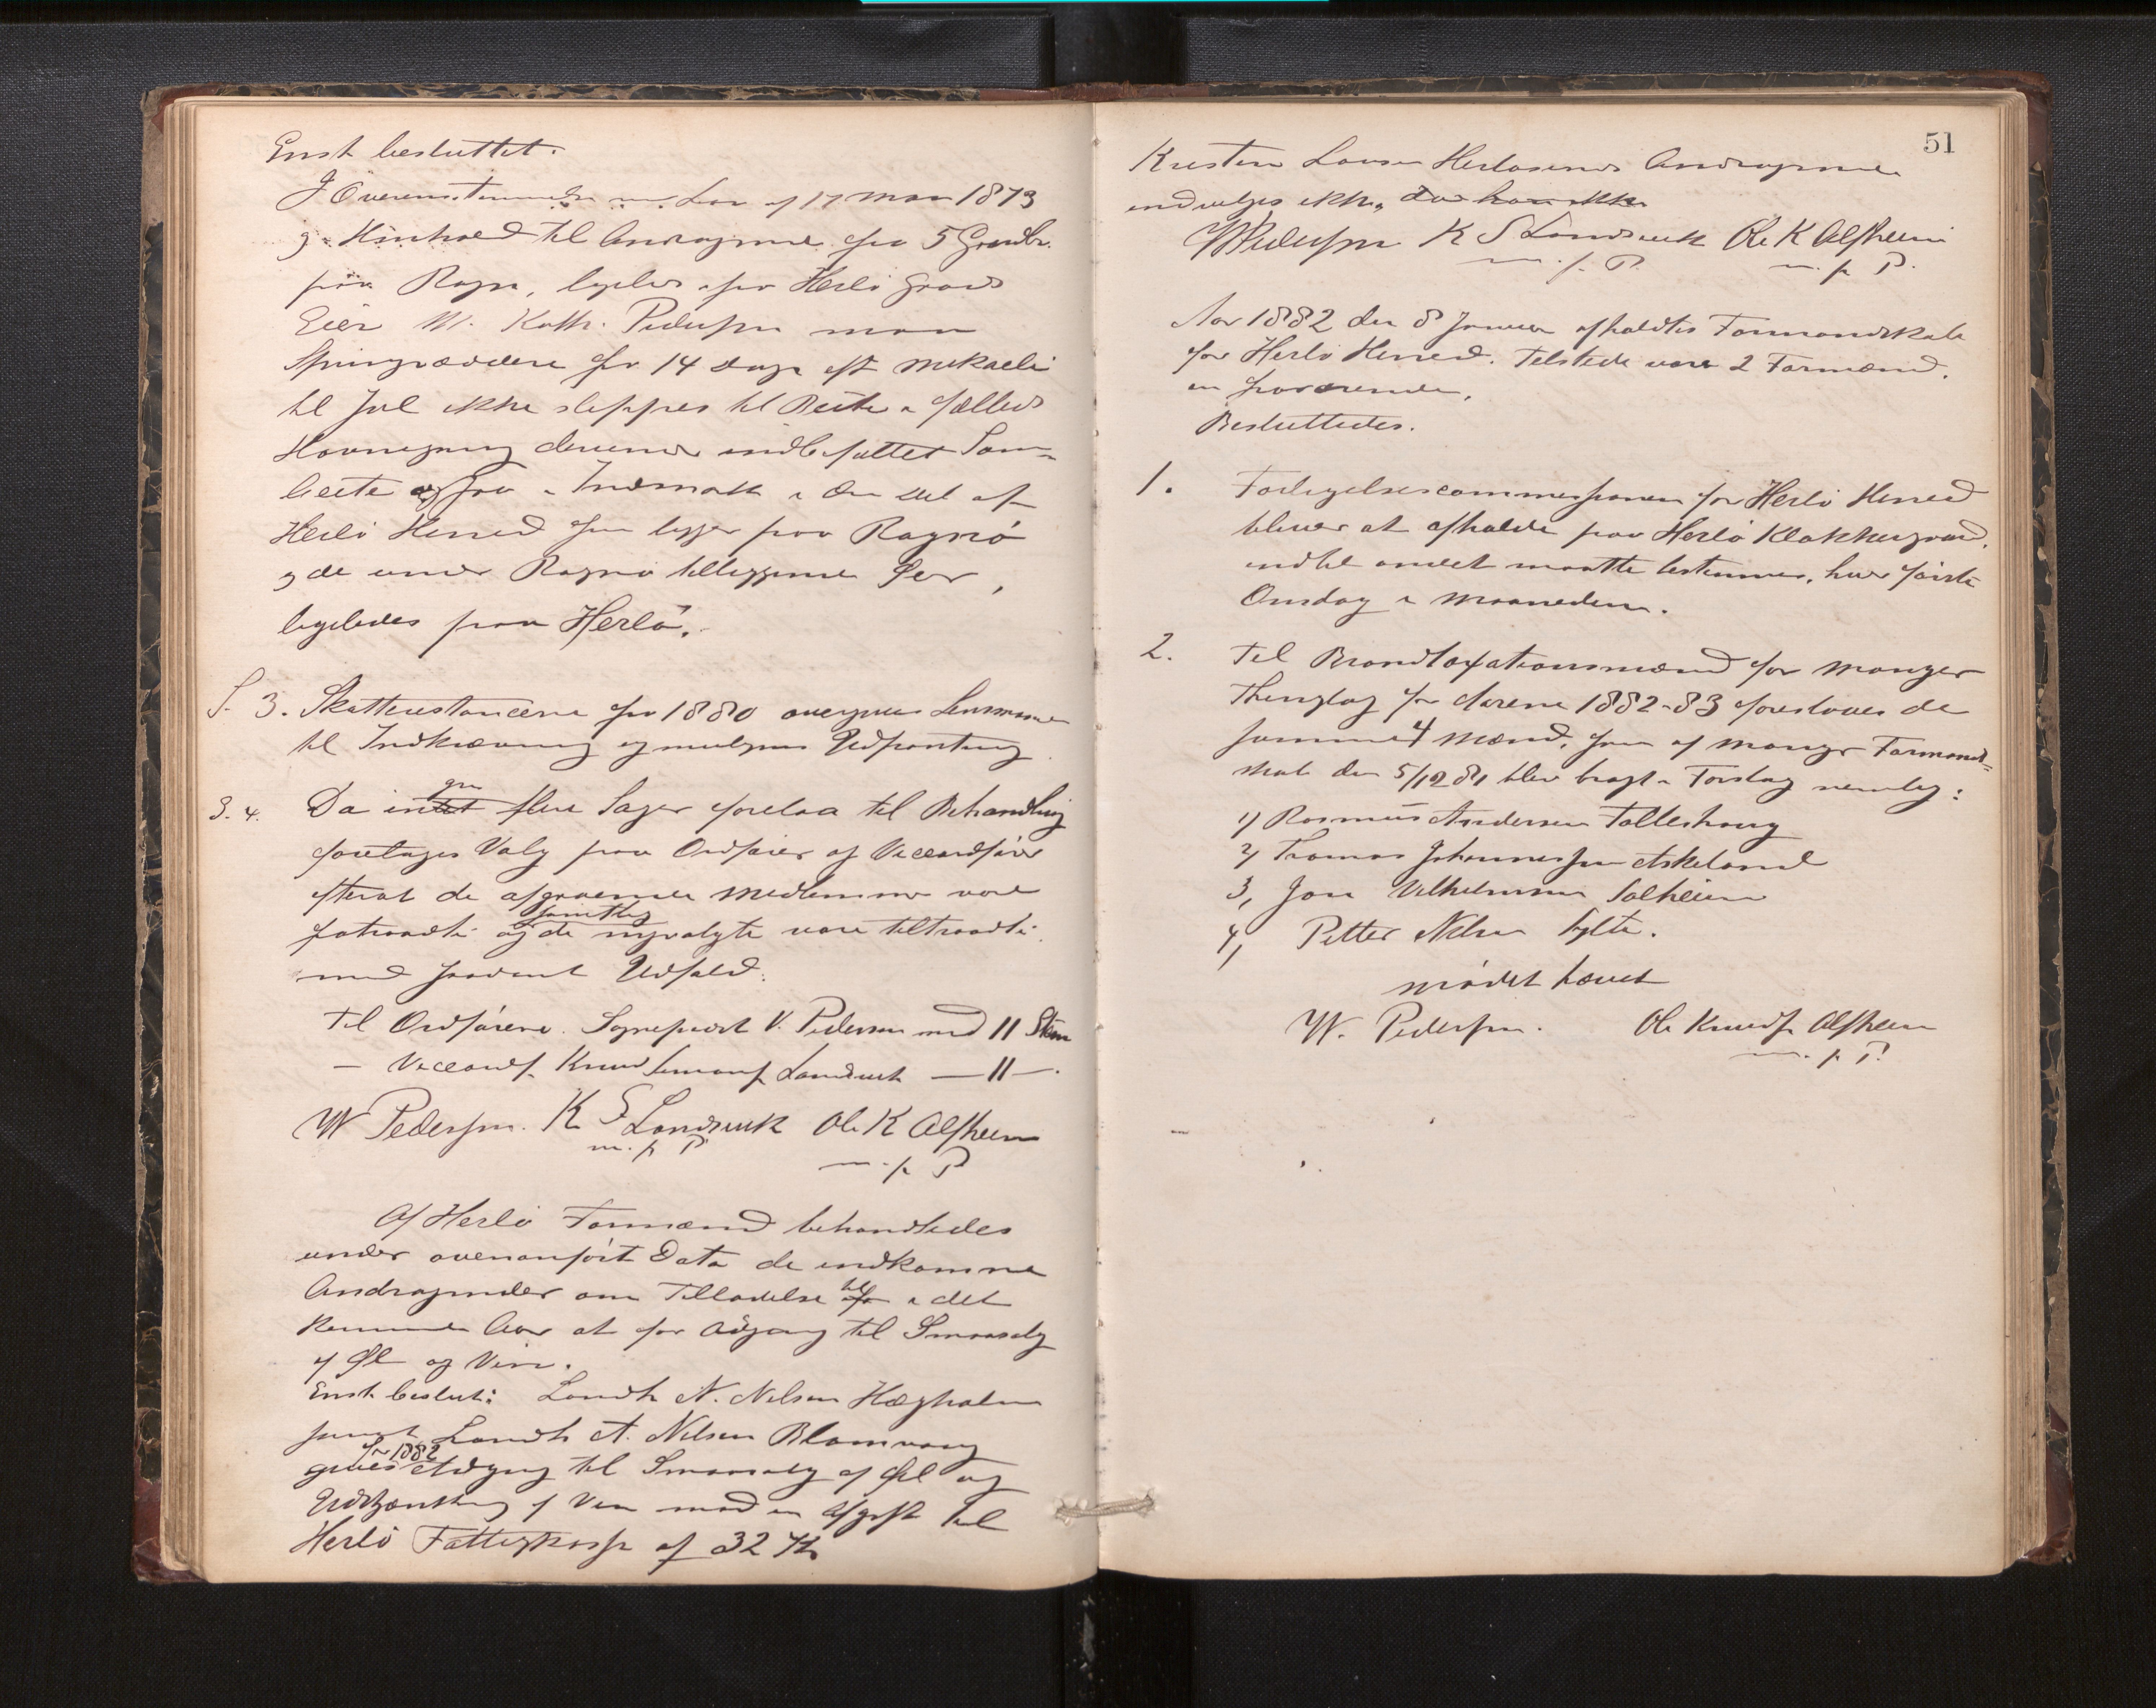 Enst besluttet.
I Overensstemmelse m. Lov af 17 Mai 1873
og Hinhold til Andragende fra 5 Gaardbr.
paa Ragnö, ligeledes fra Herlö Gaards
Eier W. Kath. Pedersen maa
Springvæddere fra 14 Dage eft Mikaeli
til Jul ikke slippes til Beite i fælleds
Havnegang derunder indbefattet Sam-
beite ogsaa i Indmark i den Del af
Herlö Herred som ligger paa Ragnö
og de under Ragnö tilliggende Öer,
ligeledes paa Herlö.
S. 3. Skatterestancerne for 1880 overgives Lensmanden
til Inddrivning og muligens Udpantning.
S. 4. Da indet gen flere Sager forelaa til Behandling
foretoges Valg paa Ordförer og Viceordförer
efterat de afgaaende Medlemmer vare
fratraadte og de samtlig nyvalgte vare tiltraadte
med saadant Udfald:
Til Ordförere. Sogneprest W. Pedersen med 11 Stem
— Viceordf. Knud Simons. Landsvik — 11 —.
W Pederssen. K S Landsvik Ole K Alfheim
m. p. P. m. p. P.
Af Herlö Formænd behandledes
under ovenanfört Data de indkomne
Andragender om Tilladelse for til i det
kommende Aar at faa Adgang til Smaasalg
af Öl og Vin.
Enst beslut: Landh N. Nilsen Hægholm
samt Landh A. Nilsen Blomvaag
gives for 1882 Adgang til Smaasalg af Öl og
Udskjænkning af Vin mod en Afgift til
Herlö Fattigkasse af 32 Kr
51
Kristen Larsen Herlösunds Andragende
indvilges ikke, da han ikke
W Pederssen K S Landsvik Ole K Alfheim
m. p. P. m. p. P.
Aar 1882 den 8 Januar afholdtes Formandskab
for Herlö Herred. Tilstede vare 2 Formænd,
en fraværende.
Besluttedes.
1. Forligelsescommissionen for Herlö Herred
bliver at afholde paa Herlö Klokkergaard,
indtil andet maatte bestemmes, hver förste
Onsdag i Maaneden.
2. Til Brandtaxationsmænd for Manger
Thinglag for Aarene 1882-83 foreslaaes de
samme 4 Mænd, som af Manger Formand-
skab den 5/12 81 blev bragt i Forslag nemlig:
1) Rasmus Andersen Tolleshaug
2) Thomas Johannessen Askeland
3, Jon Vilhelmsen Solheim
4, Petter Nilsen Sylta.
Mödet hævet
W. Pederssen. Ole Knuds. Alfheim
m. p. P.